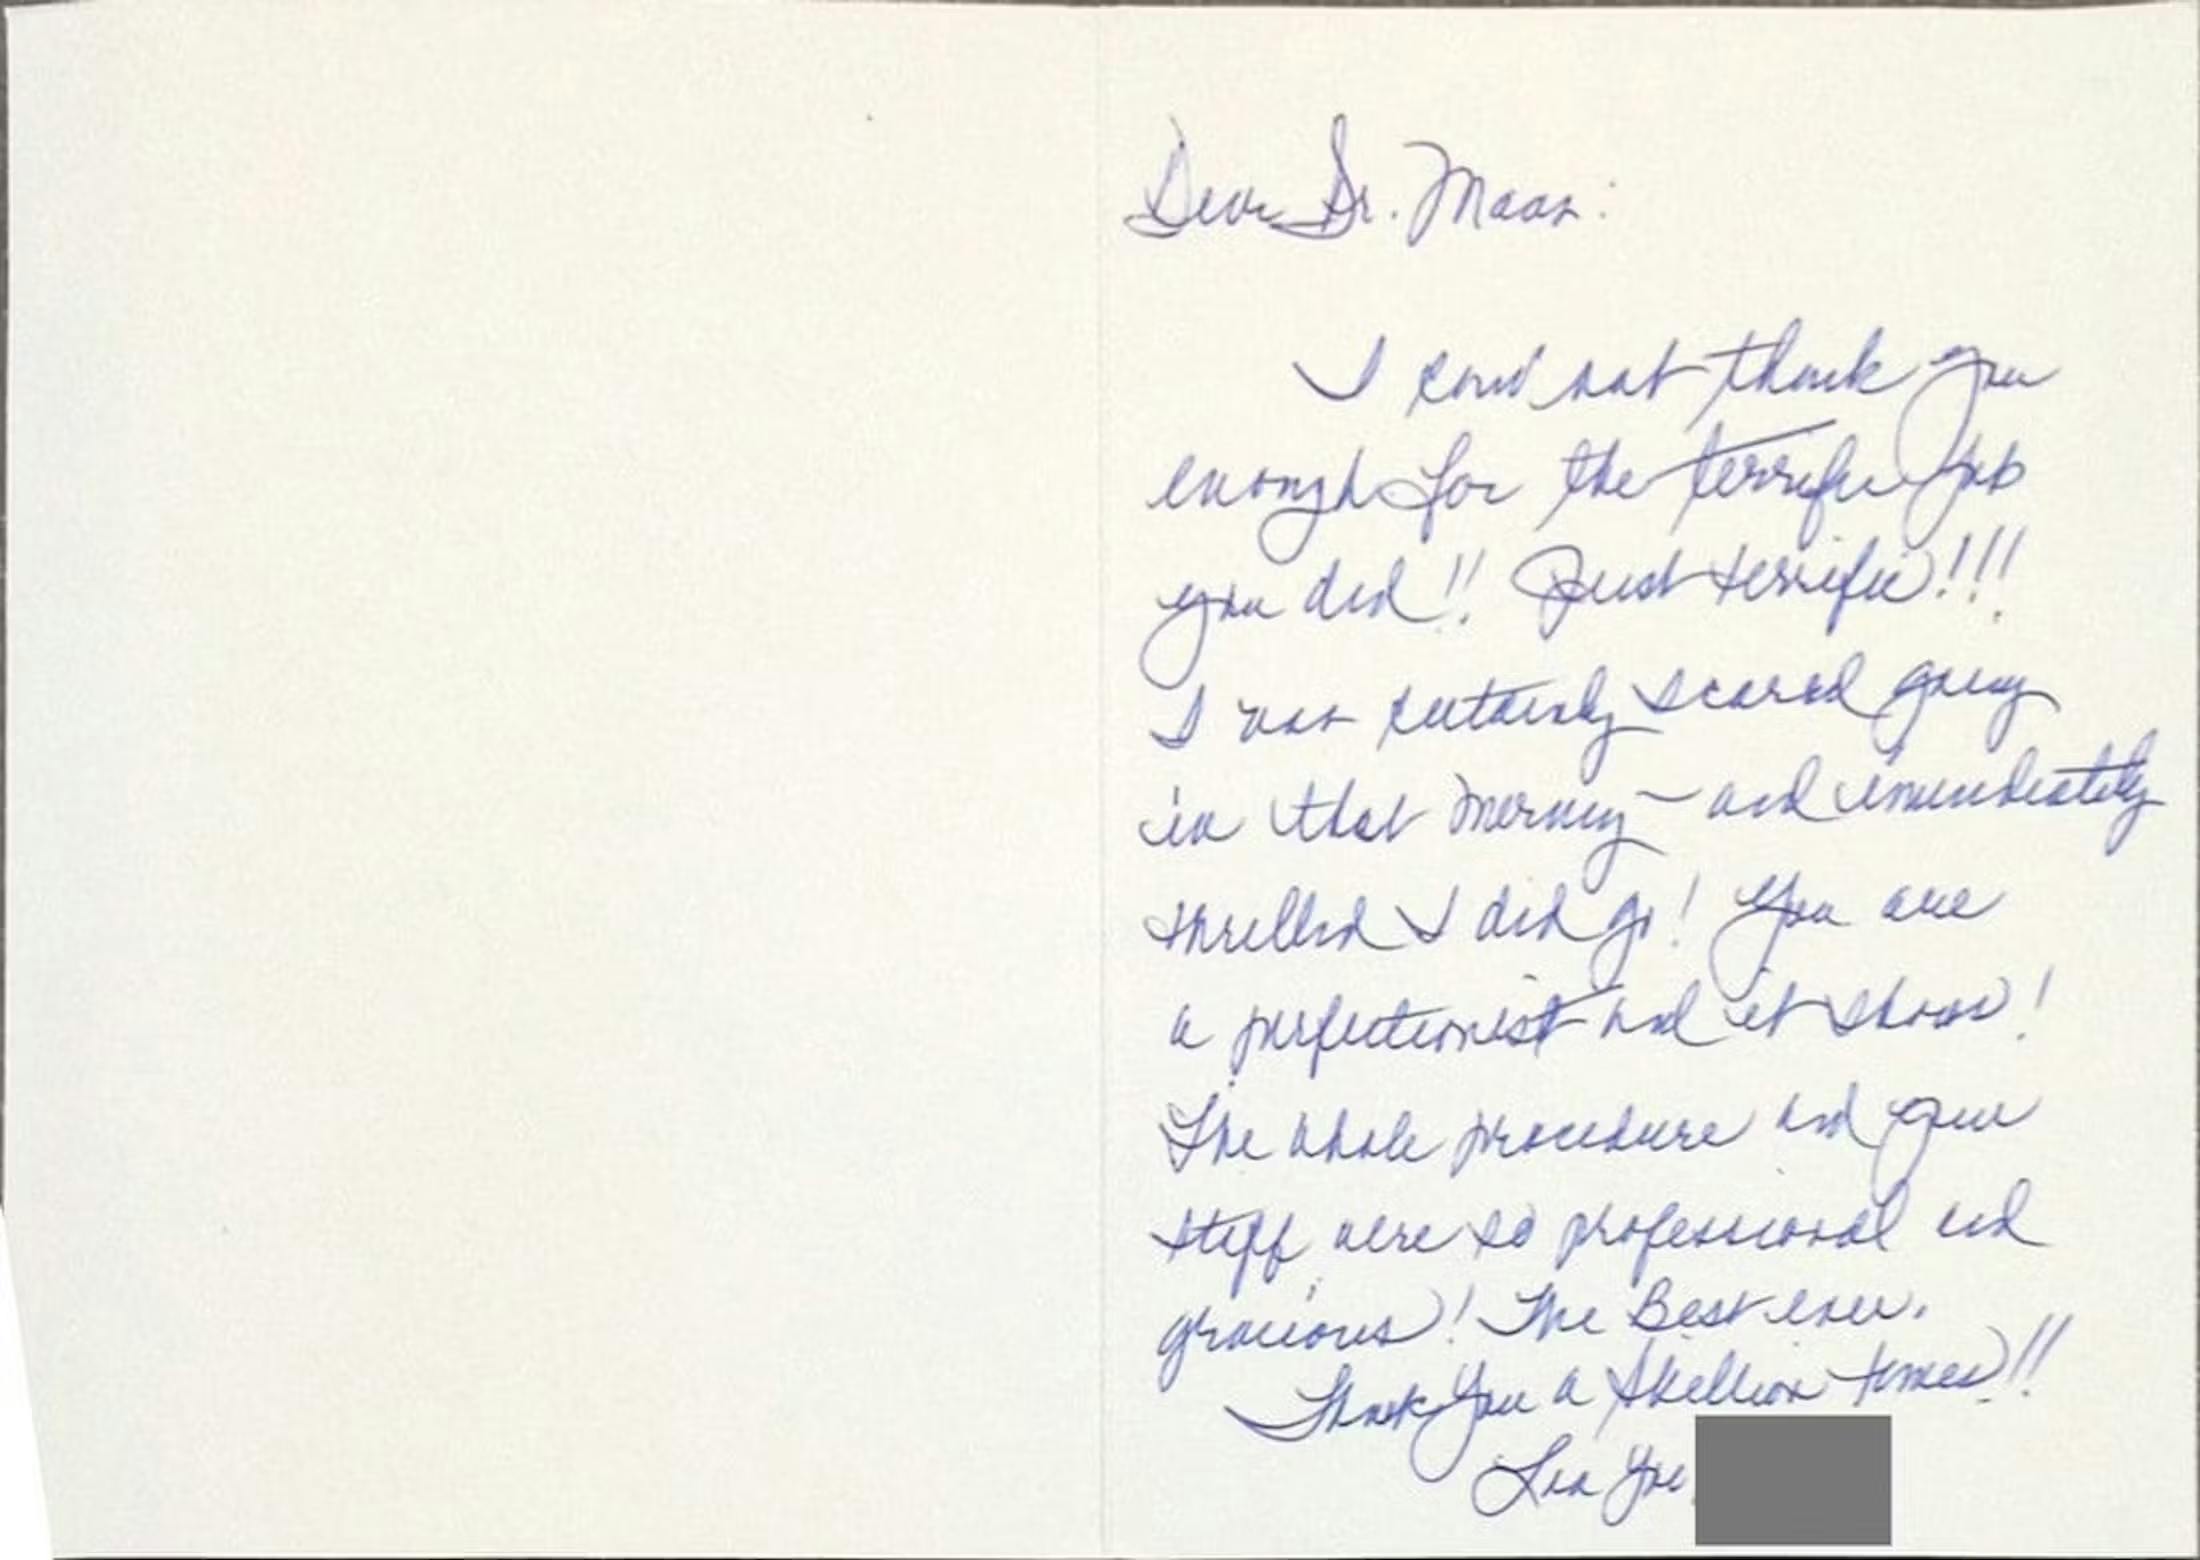 Dear Dr. Maas:
I could not thank you
enough for the terrific job
you did!! Just terrific!!!
I was certainly scared going
in that morning – and immediately
thrilled I did go! You are
a perfectionist and it shows!
The whole procedure and your
staff were so professional and
gracious! The Best ever.
Thank You a Skillion times!!